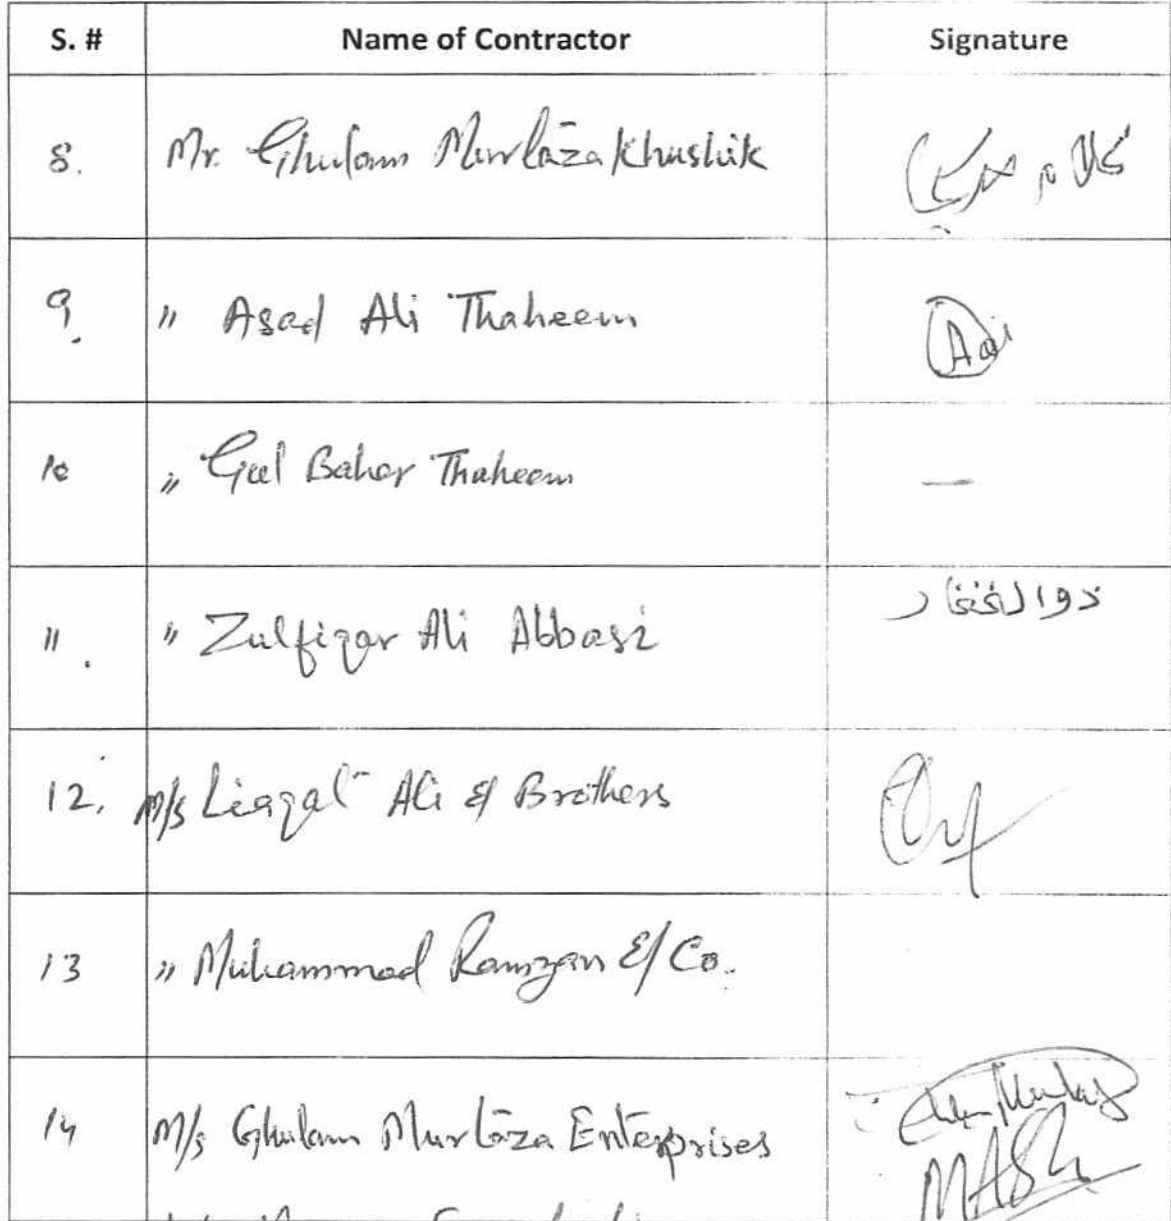 S. # Name of Contractor Signature
8. Mr. Ghulam Murtaza Khushik
9. " Asad Ali Thaheem
10 " Gul Bahar Thaheem —
11. " Zulfiqar Ali Abbasi ذوالفغار
12. M/s Liaqat Ali & Brothers
13 " Muhammad Ramzan & Co.
14 M/s Ghulam Murtaza Enterprises